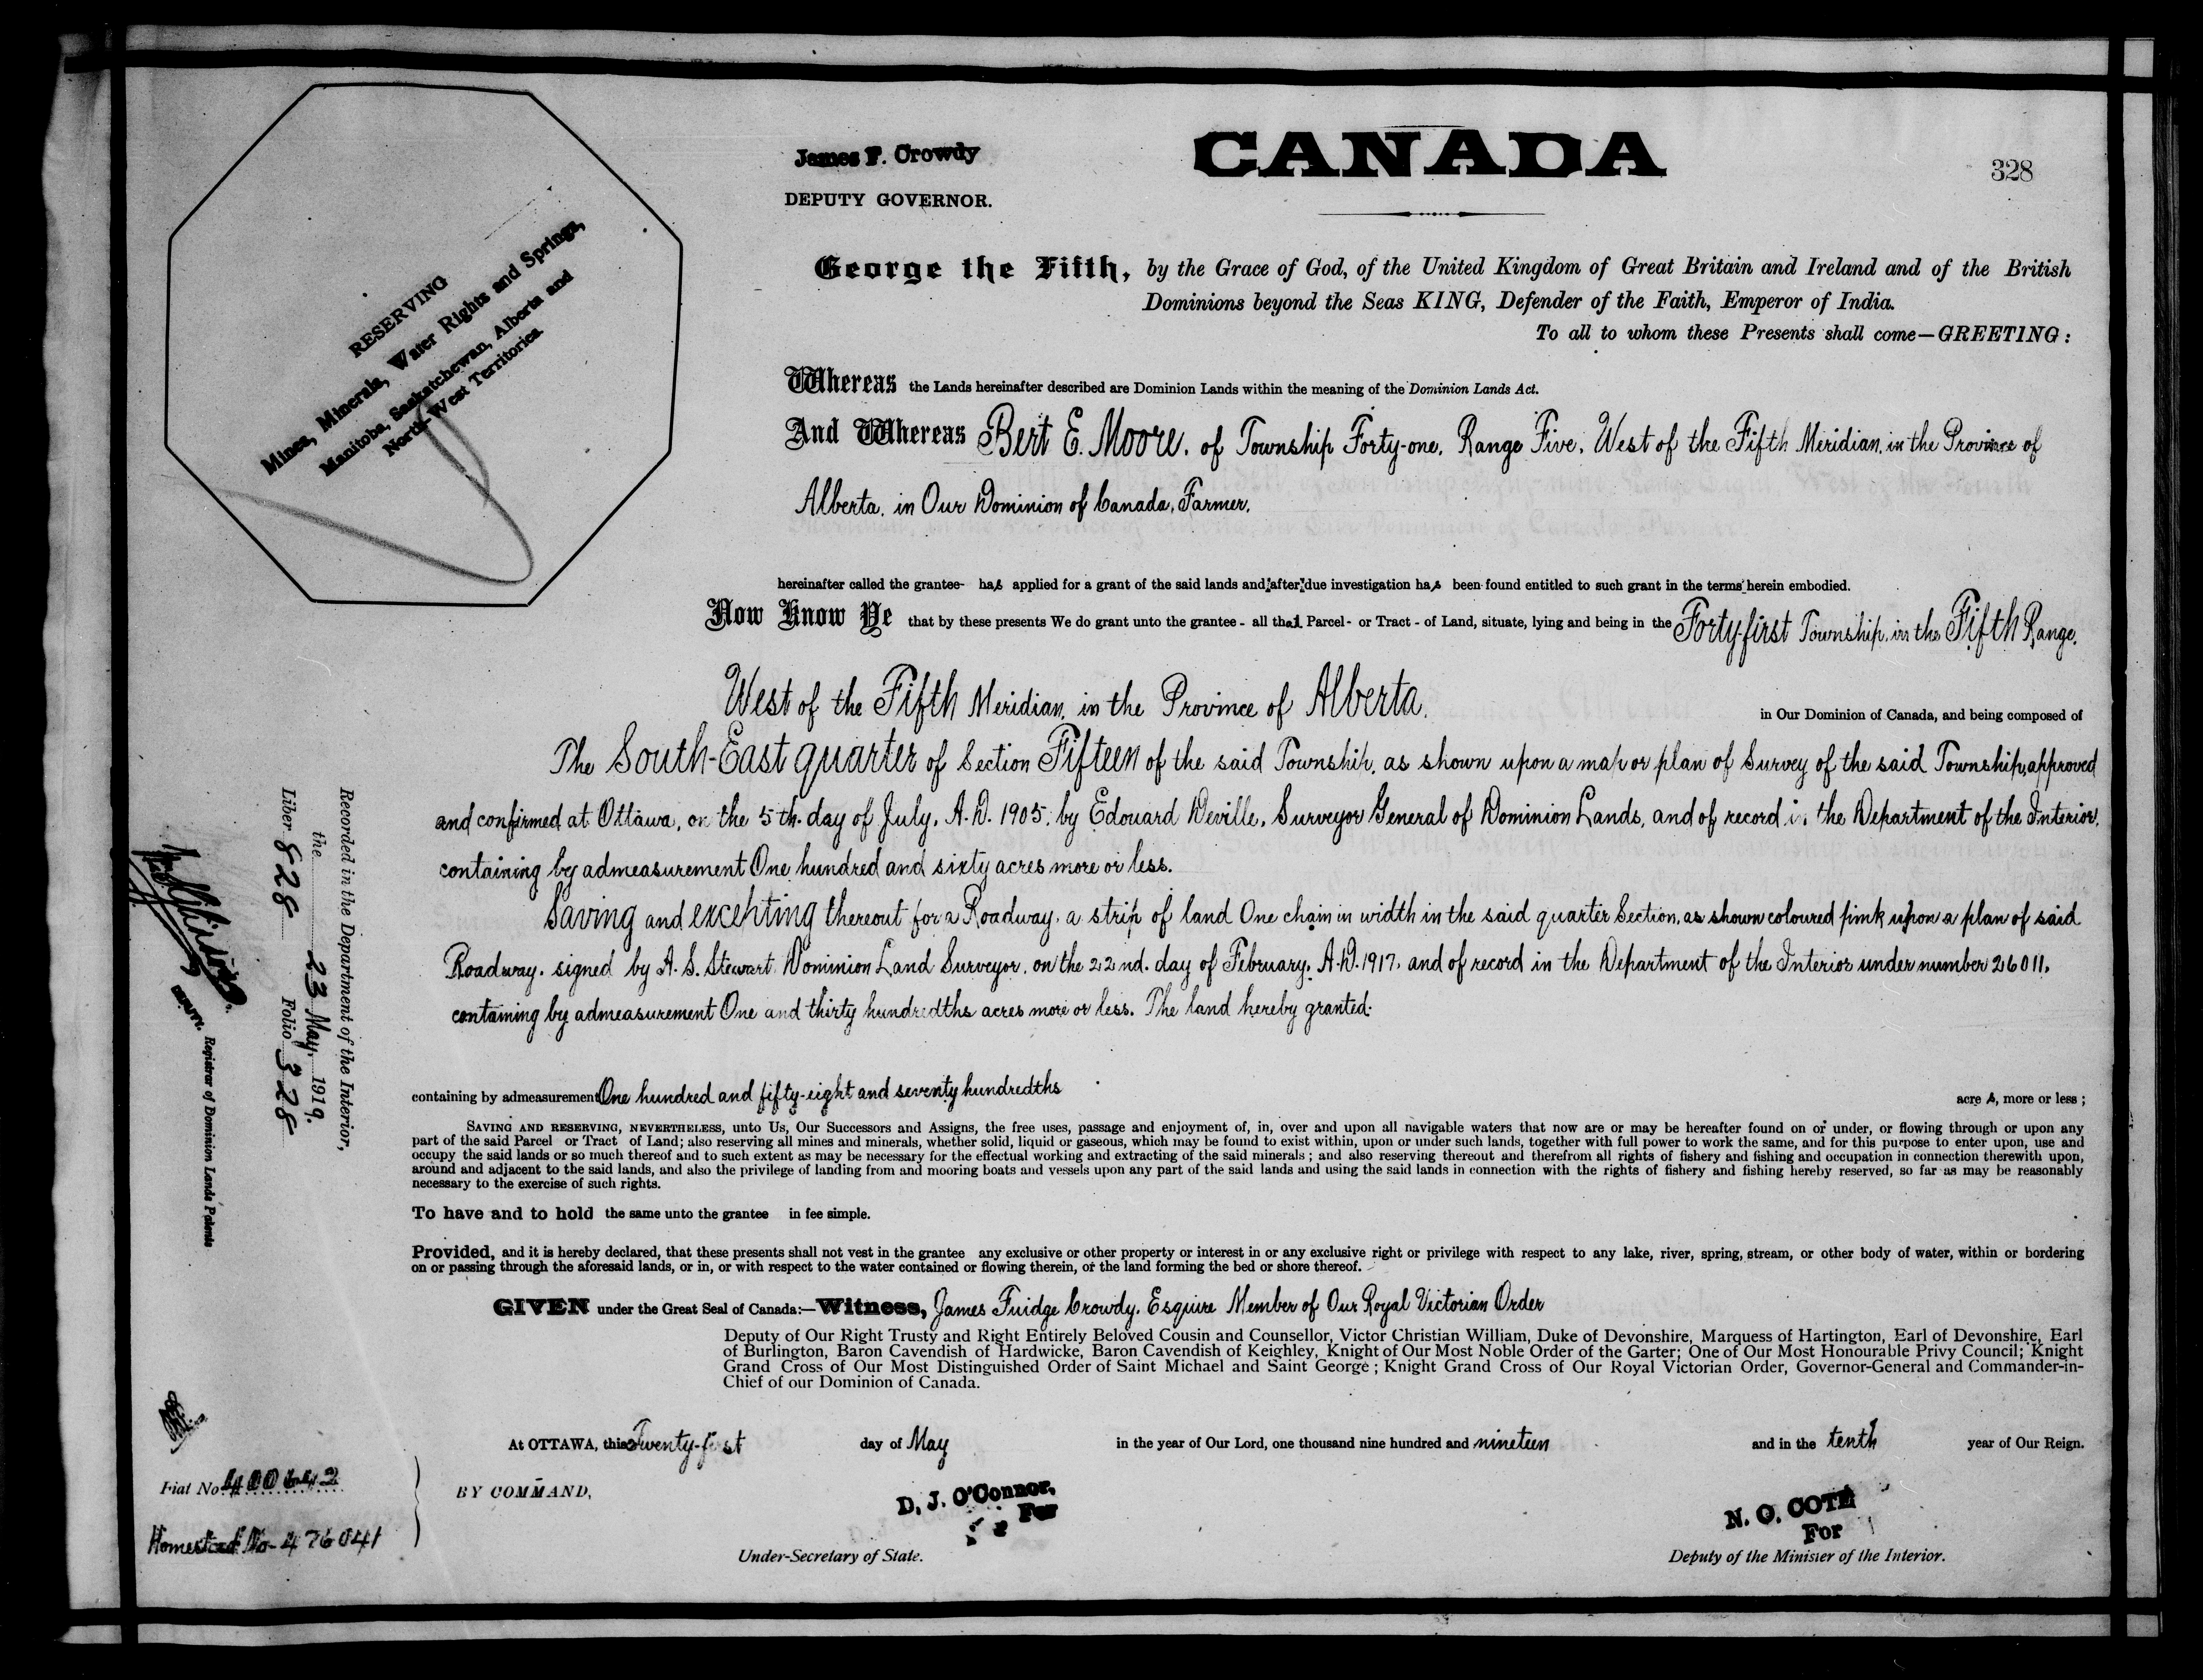 James F. Crowdy
DEPUTY GOVERNOR.
CANADA
328
RESERVING
Mines, Minerals, Water Rights and Springs,
Manitoba, Saskatchewan, Alberta and
North-West Territories.
George the Fifth, by the Grace of God, of the United Kingdom of Great Britain and Ireland and of the British
Dominions beyond the Seas KING, Defender of the Faith, Emperor of India.
To all to whom these Presents shall come—GREETING:
Whereas the Lands hereinafter described are Dominion Lands within the meaning of the Dominion Lands Act.
And Whereas Bert E. Moore, of Township Forty-one, Range Five, West of the Fifth Meridian, in the Province of
Alberta, in Our Dominion of Canada, Farmer,
hereinafter called the grantee- has applied for a grant of the said lands and after due investigation has been found entitled to such grant in the terms herein embodied.
Now Know Ye that by these presents We do grant unto the grantee - all that Parcel - or Tract - of Land, situate, lying and being in the Forty-first Township, in the Fifth Range,
West of the Fifth Meridian, in the Province of Alberta,
in Our Dominion of Canada, and being composed of
The South-East quarter of Section Fifteen of the said Township, as shown upon a map or plan of Survey of the said Township, approved
and confirmed at Ottawa, on the 5th. day of July, A.D. 1905, by Edouard Deville, Surveyor General of Dominion Lands, and of record in the Department of the Interior,
containing by admeasurement One hundred and sixty acres more or less.
Saving and excepting thereout for a Roadway, a strip of land One chain in width in the said quarter Section, as shown coloured pink upon a plan of said
Roadway, signed by A. S. Stewart, Dominion Land Surveyor, on the 22nd. day of February, A.D. 1917, and of record in the Department of the Interior under number 26011,
containing by admeasurement One and thirty hundredths acres more or less. The land hereby granted:
containing by admeasurement One hundred and fifty-eight and seventy hundredths acre s, more or less;
SAVING AND RESERVING, NEVERTHELESS, unto Us, Our Successors and Assigns, the free uses, passage and enjoyment of, in, over and upon all navigable waters that now are or may be hereafter found on or under, or flowing through or upon any
part of the said Parcel or Tract of Land; also reserving all mines and minerals, whether solid, liquid or gaseous, which may be found to exist within, upon or under such lands, together with full power to work the same, and for this purpose to enter upon, use and
occupy the said lands or so much thereof and to such extent as may be necessary for the effectual working and extracting of the said minerals; and also reserving thereout and therefrom all rights of fishery and fishing and occupation in connection therewith upon,
around and adjacent to the said lands, and also the privilege of landing from and mooring boats and vessels upon any part of the said lands and using the said lands in connection with the rights of fishery and fishing hereby reserved, so far as may be reasonably
necessary to the exercise of such rights.
To have and to hold the same unto the grantee in fee simple.
Provided, and it is hereby declared, that these presents shall not vest in the grantee any exclusive or other property or interest in or any exclusive right or privilege with respect to any lake, river, spring, stream, or other body of water, within or bordering
on or passing through the aforesaid lands, or in, or with respect to the water contained or flowing therein, or the land forming the bed or shore thereof.
GIVEN under the Great Seal of Canada:—Witness, James Fuidge Crowdy, Esquire Member of Our Royal Victorian Order
Deputy of Our Right Trusty and Right Entirely Beloved Cousin and Counsellor, Victor Christian William, Duke of Devonshire, Marquess of Hartington, Earl of Devonshire, Earl
of Burlington, Baron Cavendish of Hardwicke, Baron Cavendish of Keighley, Knight of Our Most Noble Order of the Garter; One of Our Most Honourable Privy Council; Knight
Grand Cross of Our Most Distinguished Order of Saint Michael and Saint George; Knight Grand Cross of Our Royal Victorian Order, Governor-General and Commander-in-
Chief of our Dominion of Canada.
At OTTAWA, this Twenty-first day of May in the year of Our Lord, one thousand nine hundred and nineteen and in the tenth year of Our Reign.
BY COMMAND,
D. J. O'Connor,
For
Under-Secretary of State.
N. O. COTÉ
For
Deputy of the Minister of the Interior.
Recorded in the Department of the Interior,
the 23 May, 1919.
Liber 828 Folio 328
Registrar of Dominion Lands Patents
Fiat No 400642
Homestead No 476041